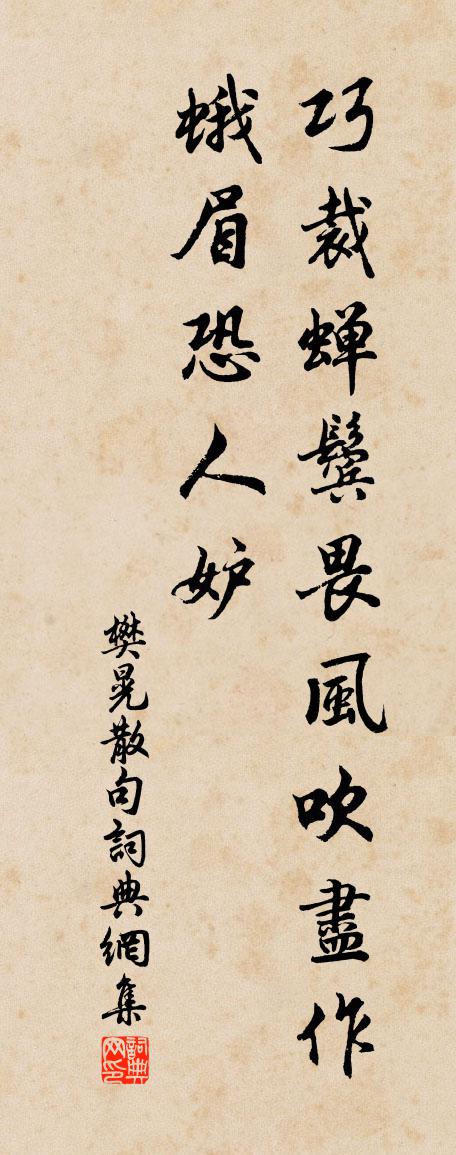 巧裁蝉鬓畏風吹盡作
蛾眉恐人妒
樊晃散句詞典網集
詞典网印